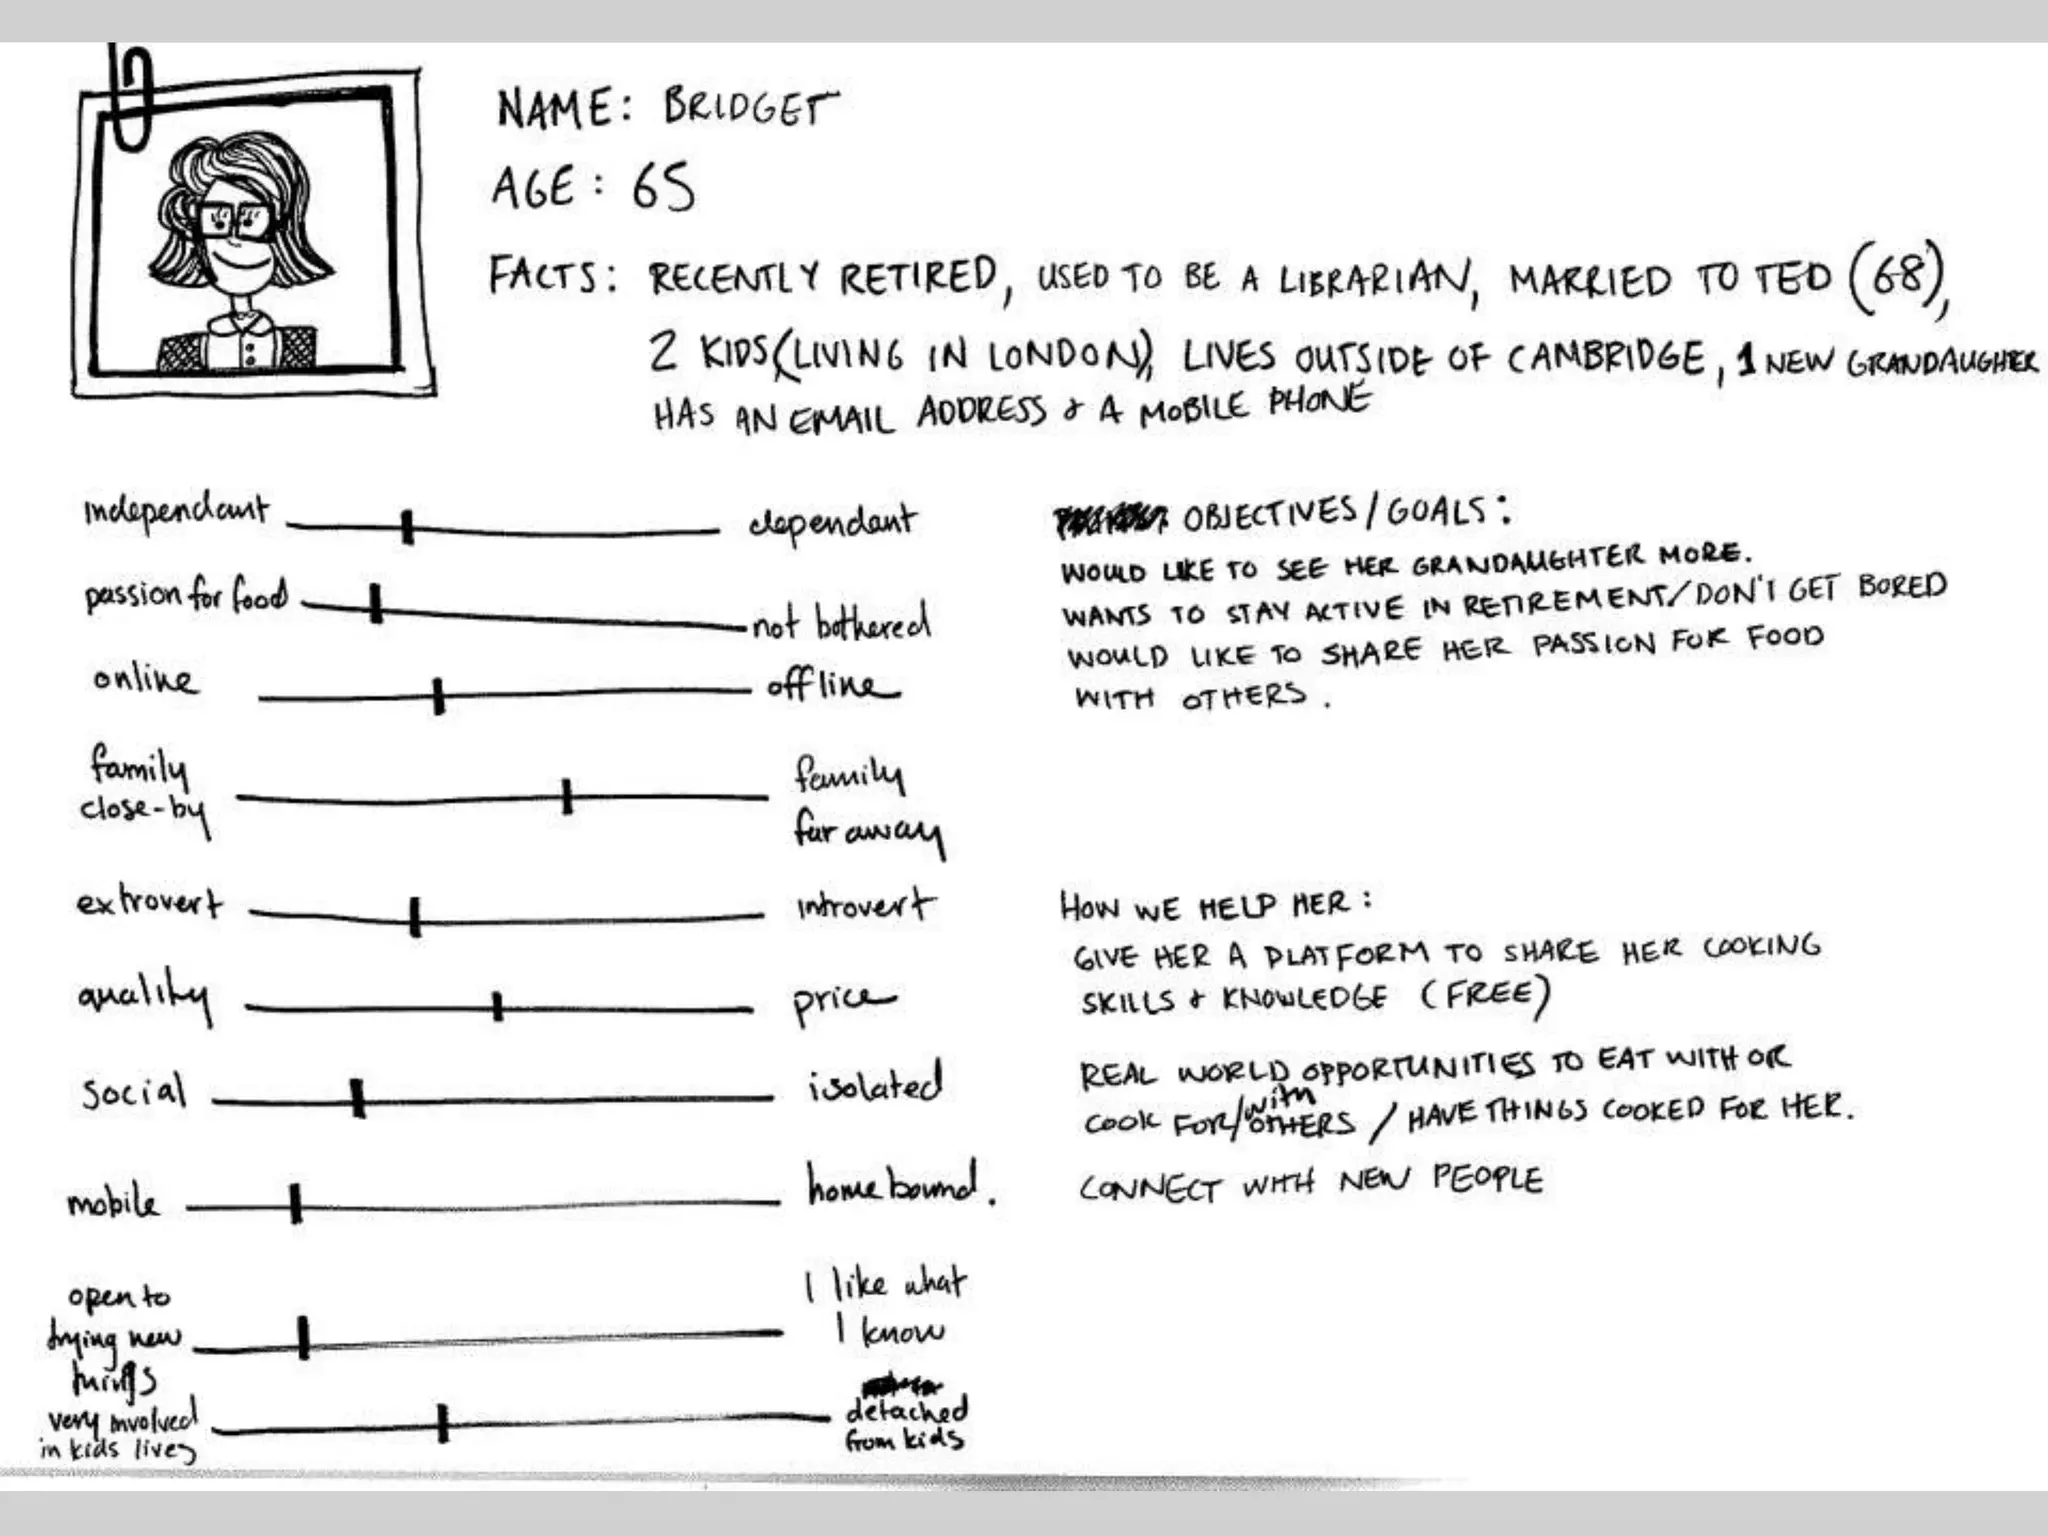 NAME: BRIDGET
AGE: 65
FACTS: RECENTLY RETIRED, USED TO BE A LIBRARIAN, MARRIED TO TED (68),
2 KIDS (LIVING IN LONDON), LIVES OUTSIDE OF CAMBRIDGE, 1 NEW GRANDAUGHTER
HAS AN EMAIL ADDRESS & A MOBILE PHONE
independant dependant
passion for food not bothered
online offline
family
close-by
family
far away
extrovert introvert
quality price
social isolated
mobile homebound.
open to
trying new
things
I like what
I know
very involved
in kids lives
detached
from kids
OBJECTIVES/GOALS:
WOULD LIKE TO SEE HER GRANDAUGHTER MORE.
WANTS TO STAY ACTIVE IN RETIREMENT/DON'T GET BORED
WOULD LIKE TO SHARE HER PASSION FOR FOOD
WITH OTHERS.
HOW WE HELP HER:
GIVE HER A PLATFORM TO SHARE HER COOKING
SKILLS & KNOWLEDGE (FREE)
REAL WORLD OPPORTUNITIES TO EAT WITH OR
COOK FOR/with OTHERS / HAVE THINGS COOKED FOR HER.
CONNECT WITH NEW PEOPLE